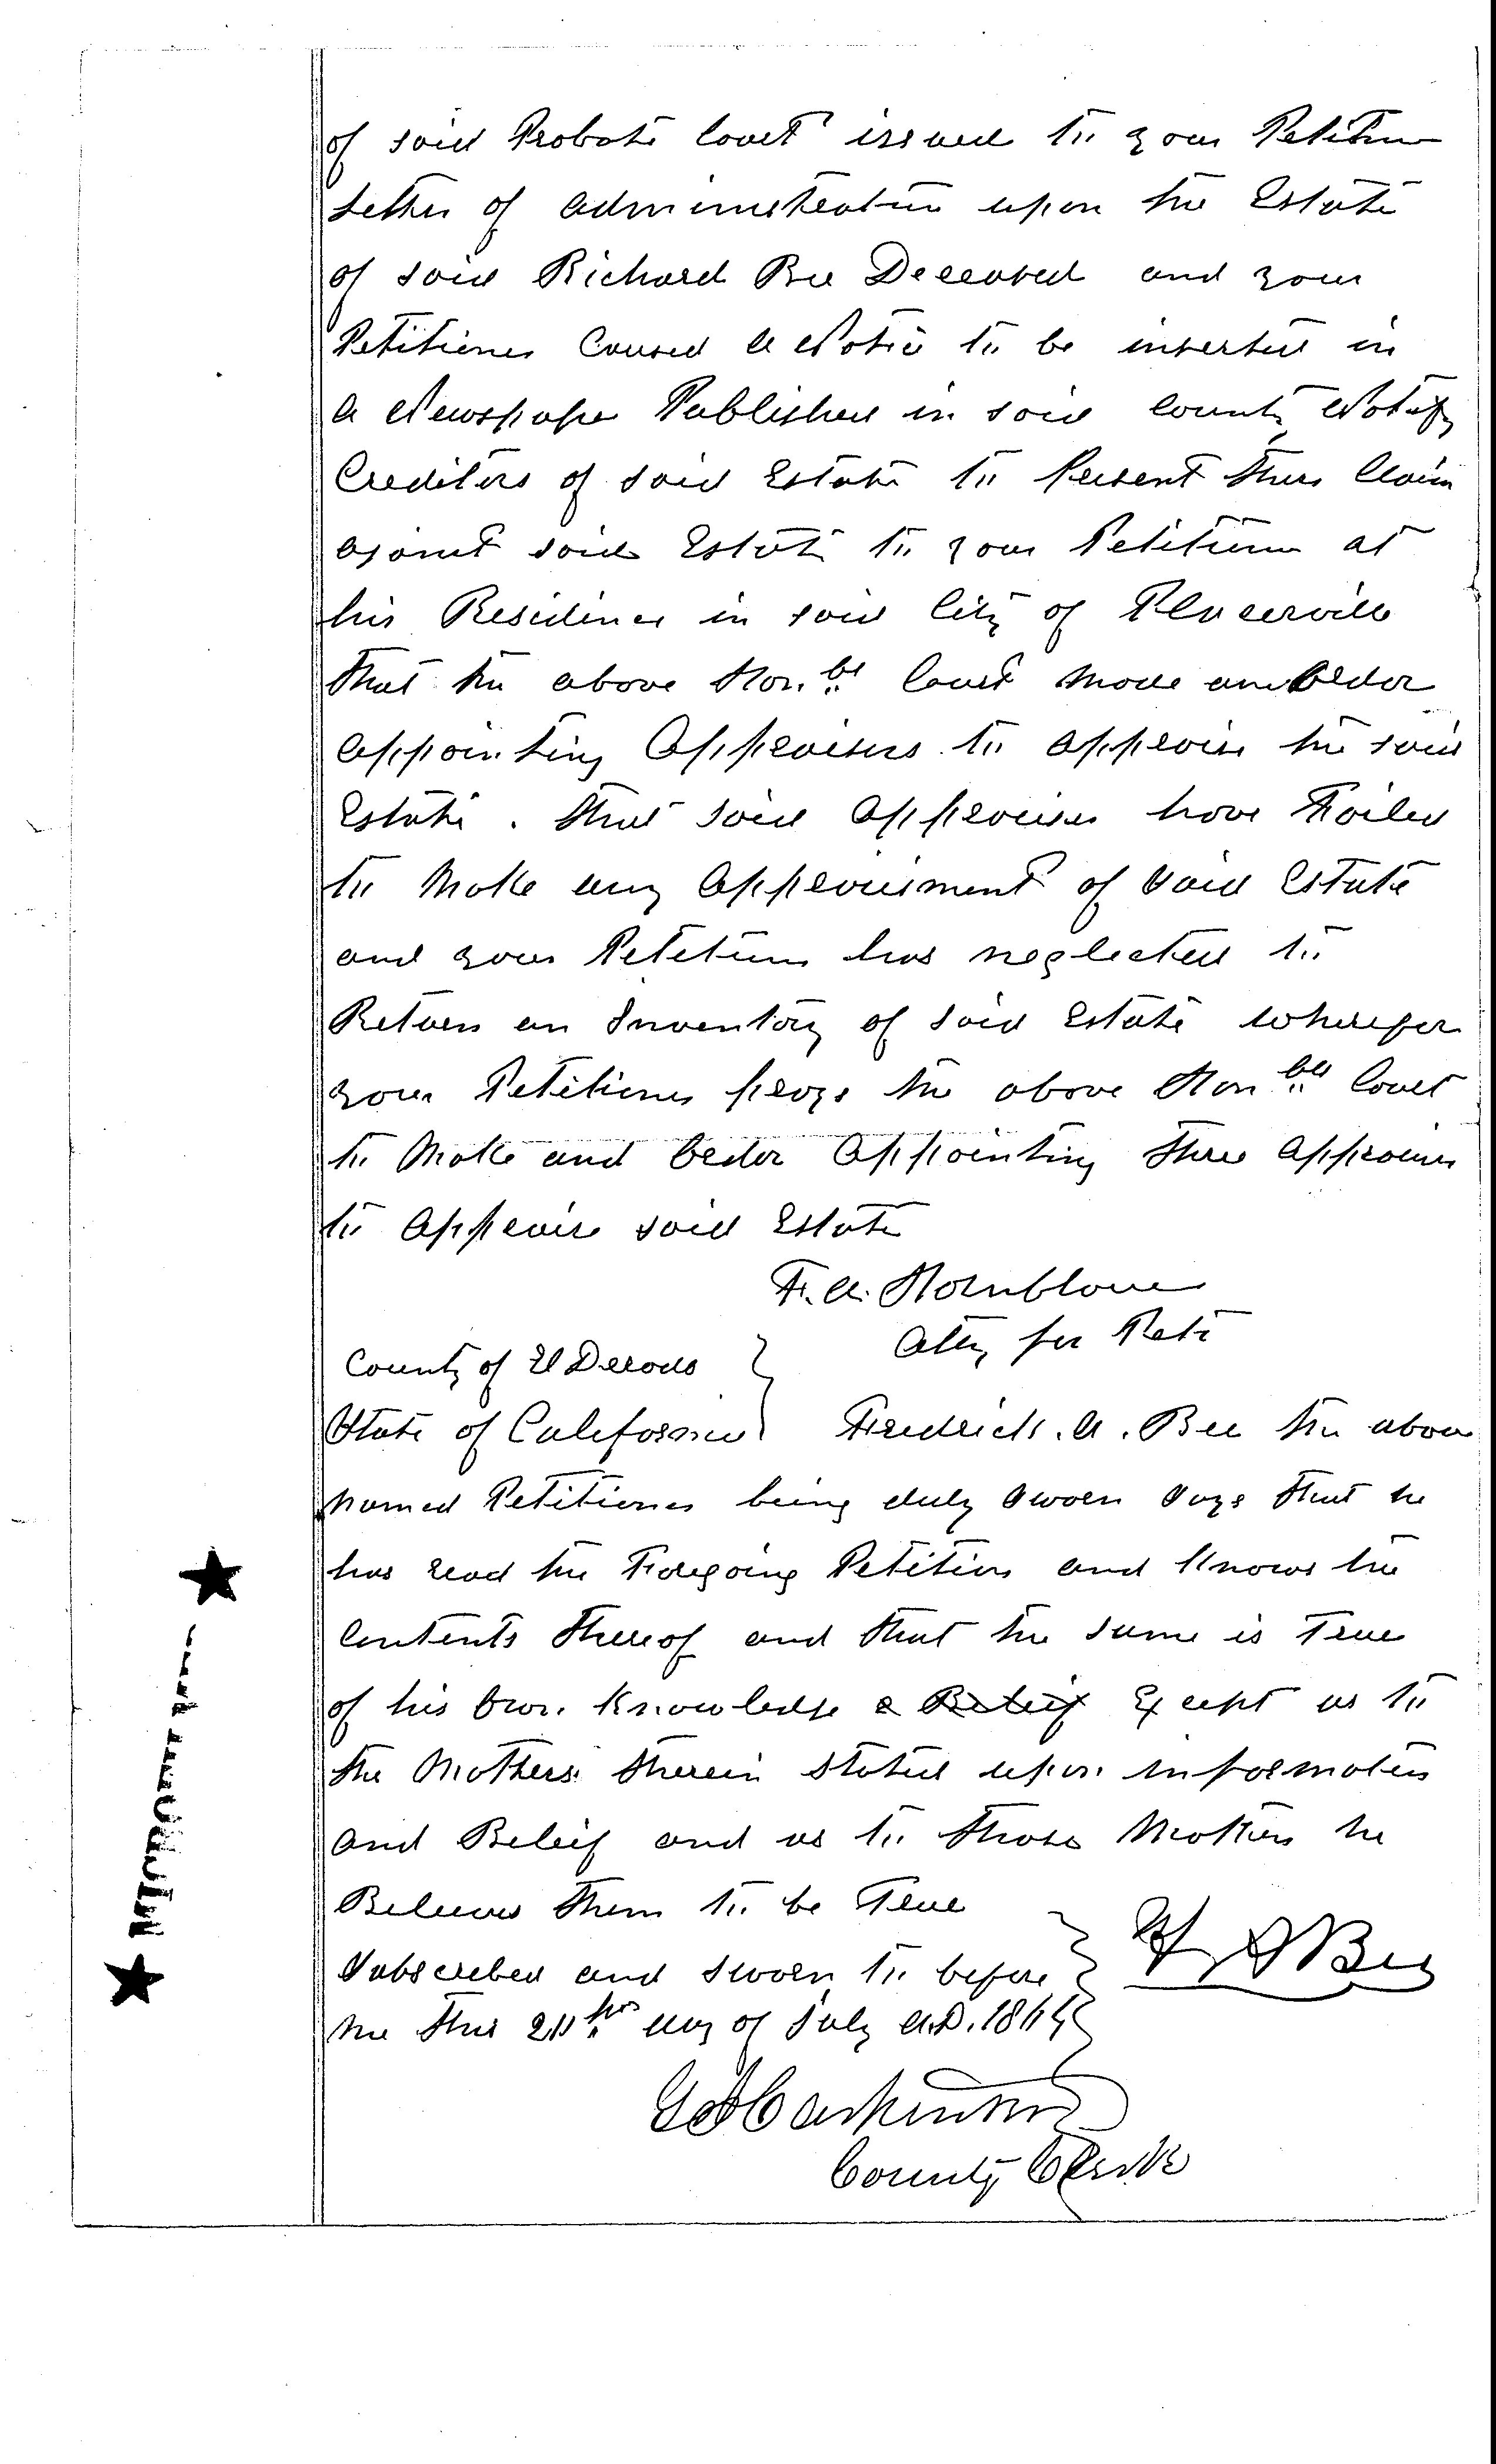 of said Probate Court issued to your Petitioner
Letters of administration upon the Estate
of said Richard Bee Deceased and your
Petitioner Caused a Notice to be inserted in
a Newspaper Published in said County Notify
Creditors of said Estate to Present their Claim
against said Estate to your Petitioner at
his Residence in said City of Placerville
that the above Hon.ble Court made an Order
appointing Appraisers to appraise the said
Estate. that said appraisers have Failed
to Make any appraisment of said Estate
and your Petitioner has neglected to
Return an Inventory of said Estate wherefor
your Petitioner prays the above Honble Court
to Make and Order Appointing three appraisers
to Appraise said Estate
F. A. Hornblower
Atty for Petr
County of El Dorado
State of California } Fredrick. A. Bee the above
named Petitioner being duly Sworn Says that he
has read the Foregoing Petition and Knows the
Contents thereof and that the same is True
of his Own Knowledge & Beleif Except as to
the Matters therein stated upon information
and Beleif and as to those Matters he
Believes them to be True
Subscribed and sworn to before } F A Bee
me this day of July A.D.
Carpenter
County Clerk